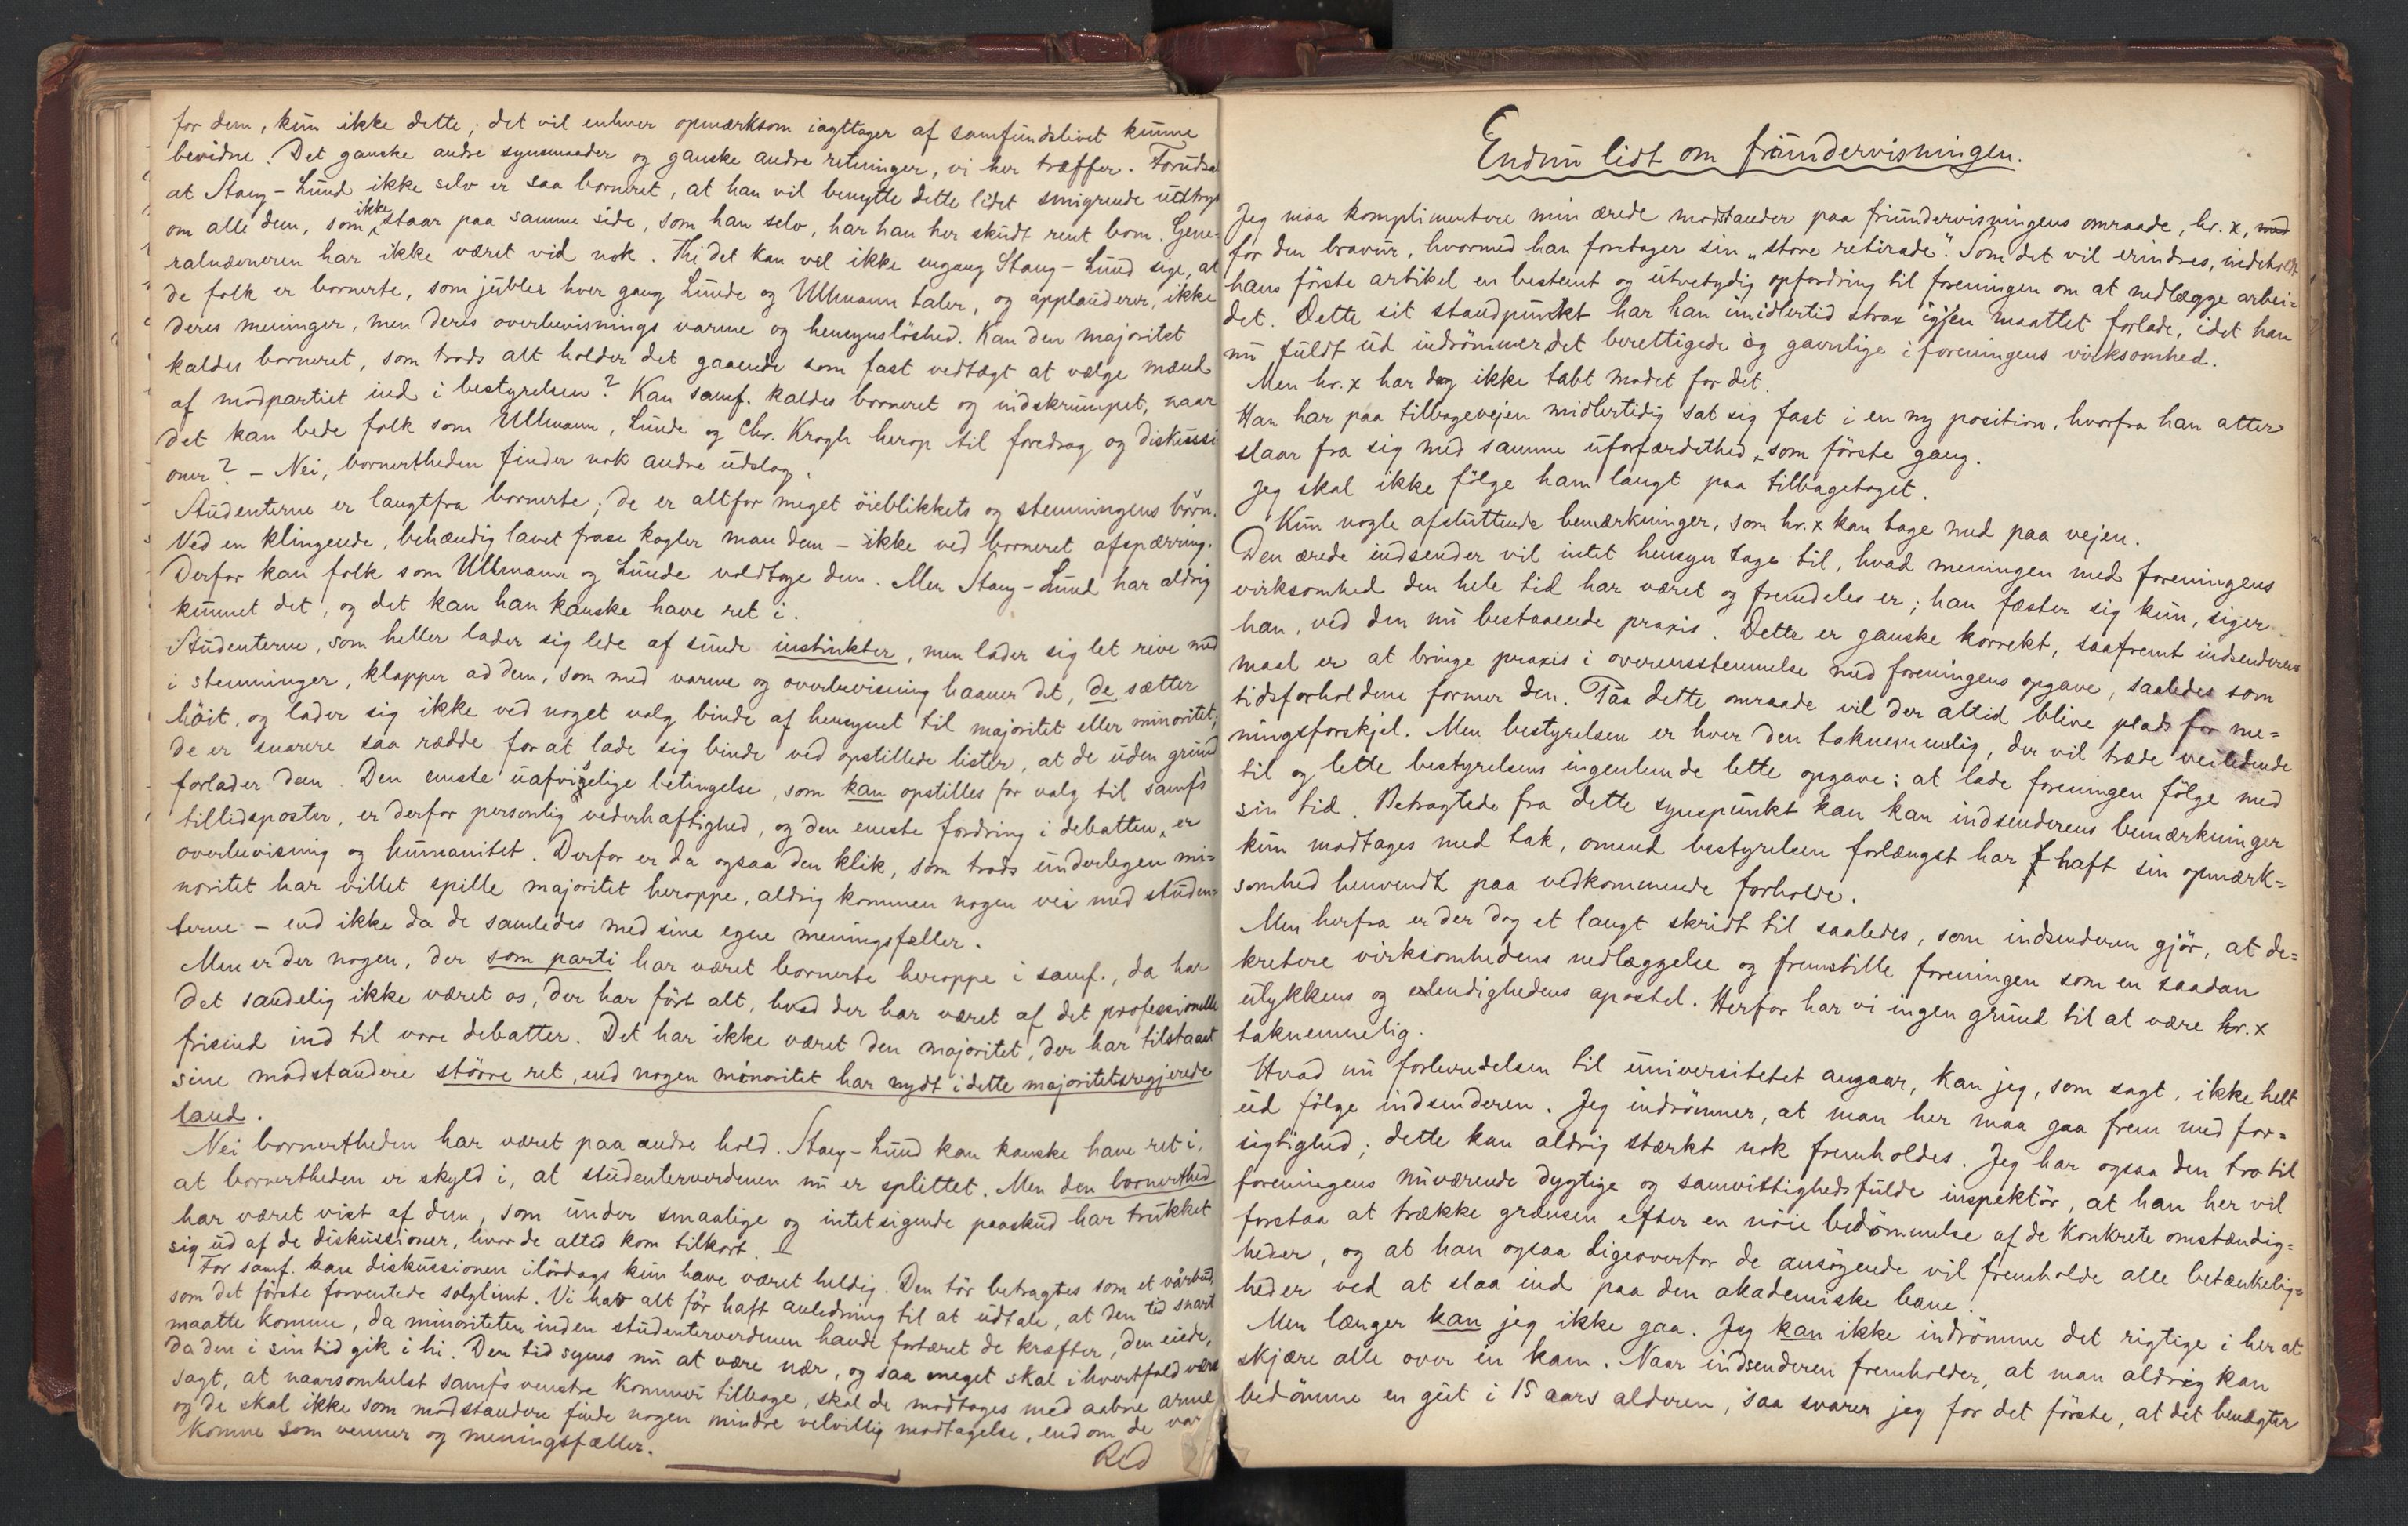 for dem, kun ikke dette; det vil enhver opmærksom iagttager af samfundslivet kunne
bevidne. Det ganske andre synsmaader og ganske andre retninger, vi her træffer. Forudsa
at Stang-Lund ikke selv er saa borneret, at han vil benytte dette lidet smigrende udtryk
om alle dem, som ikke staar paa samme side, som han selv, har han her skudt rent bom. Gene-
ralnævneren har ikke været vid nok. Thi det kan vel ikke engang Stang-Lund sige, at
de folk er bornerte, som jubler hver gang Lunde og Ullmann taler, og applauderer, ikke
deres meninger, men deres overbevisnings varme og hensynsløshed. Kan den majoritet
kaldes borneret, som trods alt holder det gaaende som fast vedtægt at vælge mænd
af modpartiet ind i bestyrelsen? Kan samf. kaldes borneret og indskrumpet, naar
det kan bede folk som Ullmann, Lunde og Chr. Krogh herop til foredrag og diskussi
oner? – Nei, bornertheden finder nok andre udslag.
Studenterne er langtfra bornerte; de er altfor meget öieblikkets og stemningens börn.
Ved en klingende, behændig lavet frase kogler man dem – ikke ved borneret afspærring.
Derfor kan folk som Ullmann og Lunde voldtage dem. Men Stang-Lund har aldrig
kunnet det, og det kan han kanske have ret i.
Studenterne, som heller lader sig lede af sunde instinkter, men lader sig let rive med
i stemninger, klapper ad dem, som med varme og overbevisning haaner det, de sætter
höit, og lader sig ikke ved noget valg binde af hensynet til majoritet eller minoritet;
de er snarere saa rædde for at lade sig binde ved opstillede lister, at de uden grund
forlader dem. Den eneste uafviselige betingelse, som kan opstilles for valg til samfs
tillidsposter, er derfor personlig vederhæftighed, og den eneste fordring i debatten, er
overbevisning og humanitet. Derfor er da ogsaa den klik, som trods underlegen mi=
noritet har villet spille majoritet heroppe, aldrig kommen nogen vei med studen=
terne – end ikke da de samledes med sine egne meningsfæller.
Men er der nogen, der som parti har været bornerte heroppe i samf., da har
det sandelig ikke været os, der har fört alt, hvad der har været af det professionelle
frisind ind til vore debatter. Det har ikke været den majoritet, der har tilstaaet
sine modstandere större ret, end nogen minoritet har nydt i dette majoritetsregjerede
land.
Nei bornertheden har været paa andre hold. Stang-Lund kan kanske have ret i,
at bornertheden er skyld i, at studenterverdenen nu er splittet. Men den bornerthed
har været vist af dem, som under smaalige og intetsigende paaskud har trukket
sig ud af de diskussioner, hvor de altid kom tilkort.
For samf. kan diskussionen ilördags kun have været heldig. Den tör betragtes som et vårbud,
som det förste forventede solglimt. Vi har alt för haft anledning til at udtale, at den tid snart
maatte komme, da minoriteten inden studenterverdenen havde fortæret de kræfter, den eiede,
da den i sin tid gik i hi. Den tid synes nu at være nær, og saa meget skal i hvertfald være
sagt, at naarsomhelst samf's venstre kommer tilbage, skal de modtages med aabne arme
og de skal ikke som modstandere finde nogen mindre velvillig modtagelse, end om de var
komne som venner og meningsfæller.
Red
Endnu lidt om friundervisningen.
Jeg maa komplimentere min ærede modstander paa friundervisningens omraade, hr. x, med
for den bravur, hvormed han foretager sin „store retirade". Som det vil erindres, indeholdt
hans förste artikel en bestemt og utvetydig opfordring til foreningen om at nedlægge arbei=
det. Dette sit standpunkt har han imidlertid strax igjen maattet forlade, idet han
nu fuldt ud indrömmer det berettigede og gavnlige i foreningens virksomhed.
Men hr. x har dog ikke tabt modet for det.
Han har paa tilbagevejen midlertidig sat sig fast i en ny position, hvorfra han atter
slaar fra sig med samme uforfærdethed, som förste gang.
Jeg skal ikke fölge ham langt paa tilbagetoget.
Kun nogle afsluttende bemærkninger, som hr. x kan tage med paa vejen.
Den ærede indsender vil intet hensyn tage til, hvad meningen med foreningens
virksomhed den hele tid har været og fremdeles er; han fæster sig kun, siger
han, ved den nu bestaaende praxis. Dette er ganske korrekt, saafremt indsenderens
maal er at bringe praxis i overensstemmelse med foreningens opgave, saaledes som
tidsforholdene former den. Paa dette omraade vil der altid blive plads for me=
ningsforskjel. Men bestyrelsen er hver den taknemmelig, der vil træde veiledende
til og lette bestyrelsens ingenlunde lette opgave: at lade foreningen fölge med
sin tid. Betragtede fra dette synspunkt kan kan indsenderens bemærkninger
kun modtages med tak, omend bestyrelsen forlængst har haft sin opmærk=
somhed henvendt paa vedkommende forholde.
Men herfra er der dog et langt skridt til saaledes, som indsenderen gjör, at de=
kretere virksomhedens nedlæggelse og fremstille foreningen som en saadan
ulykkens og elendighedens apostel. Herfor har vi ingen grund til at være hr. x
taknemmelig.
Hvad nu forberedelsen til universitetet angaar, kan jeg, som sagt, ikke helt
ud fölge indsenderen. Jeg indrömmer, at man her maa gaa frem med for=
sigtighed; dette kan aldrig stærkt nok fremholdes. Jeg har ogsaa den tro til
foreningens nuværende dygtige og samvittighedsfulde inspektör, at han her vil
forstaa at trække grænsen efter en nöie bedömmelse af de konkrete omstændig=
heder, og at han ogsaa ligeoverfor de ansögende vil fremholde alle betænkelig=
heder ved at slaa ind paa den akademiske bane.
Men længer kan jeg ikke gaa. Jeg kan ikke indrömme det rigtige i her at
skjære alle over én kam. Naar indsenderen fremholder, at man aldrig kan
bedömme en gut i 15 aars alderen, saa svarer jeg for det förste, at det benægter